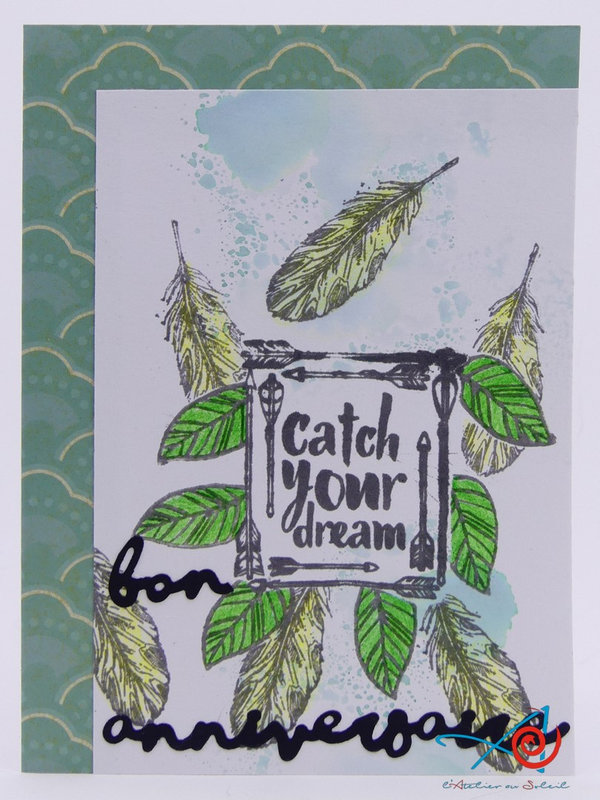 catch
your
dream
bon
anniversaire
l'Atelier au Soleil